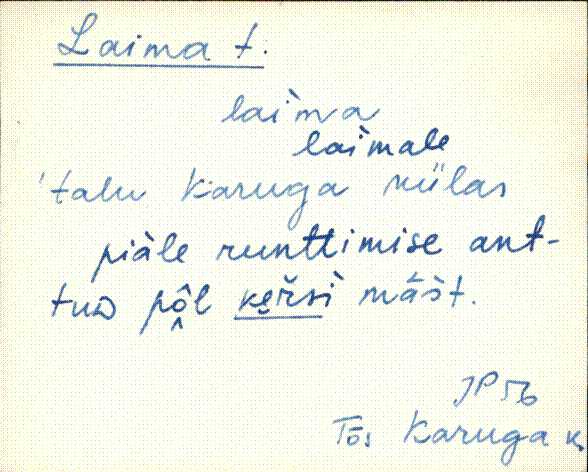 Laima t.
laìma
laìmale
'talu karuga nülas
piàle runttimise ant-
tuᴅ pô̭l kęřsì mǟšt.
JP 56
Tõs Karuga k.